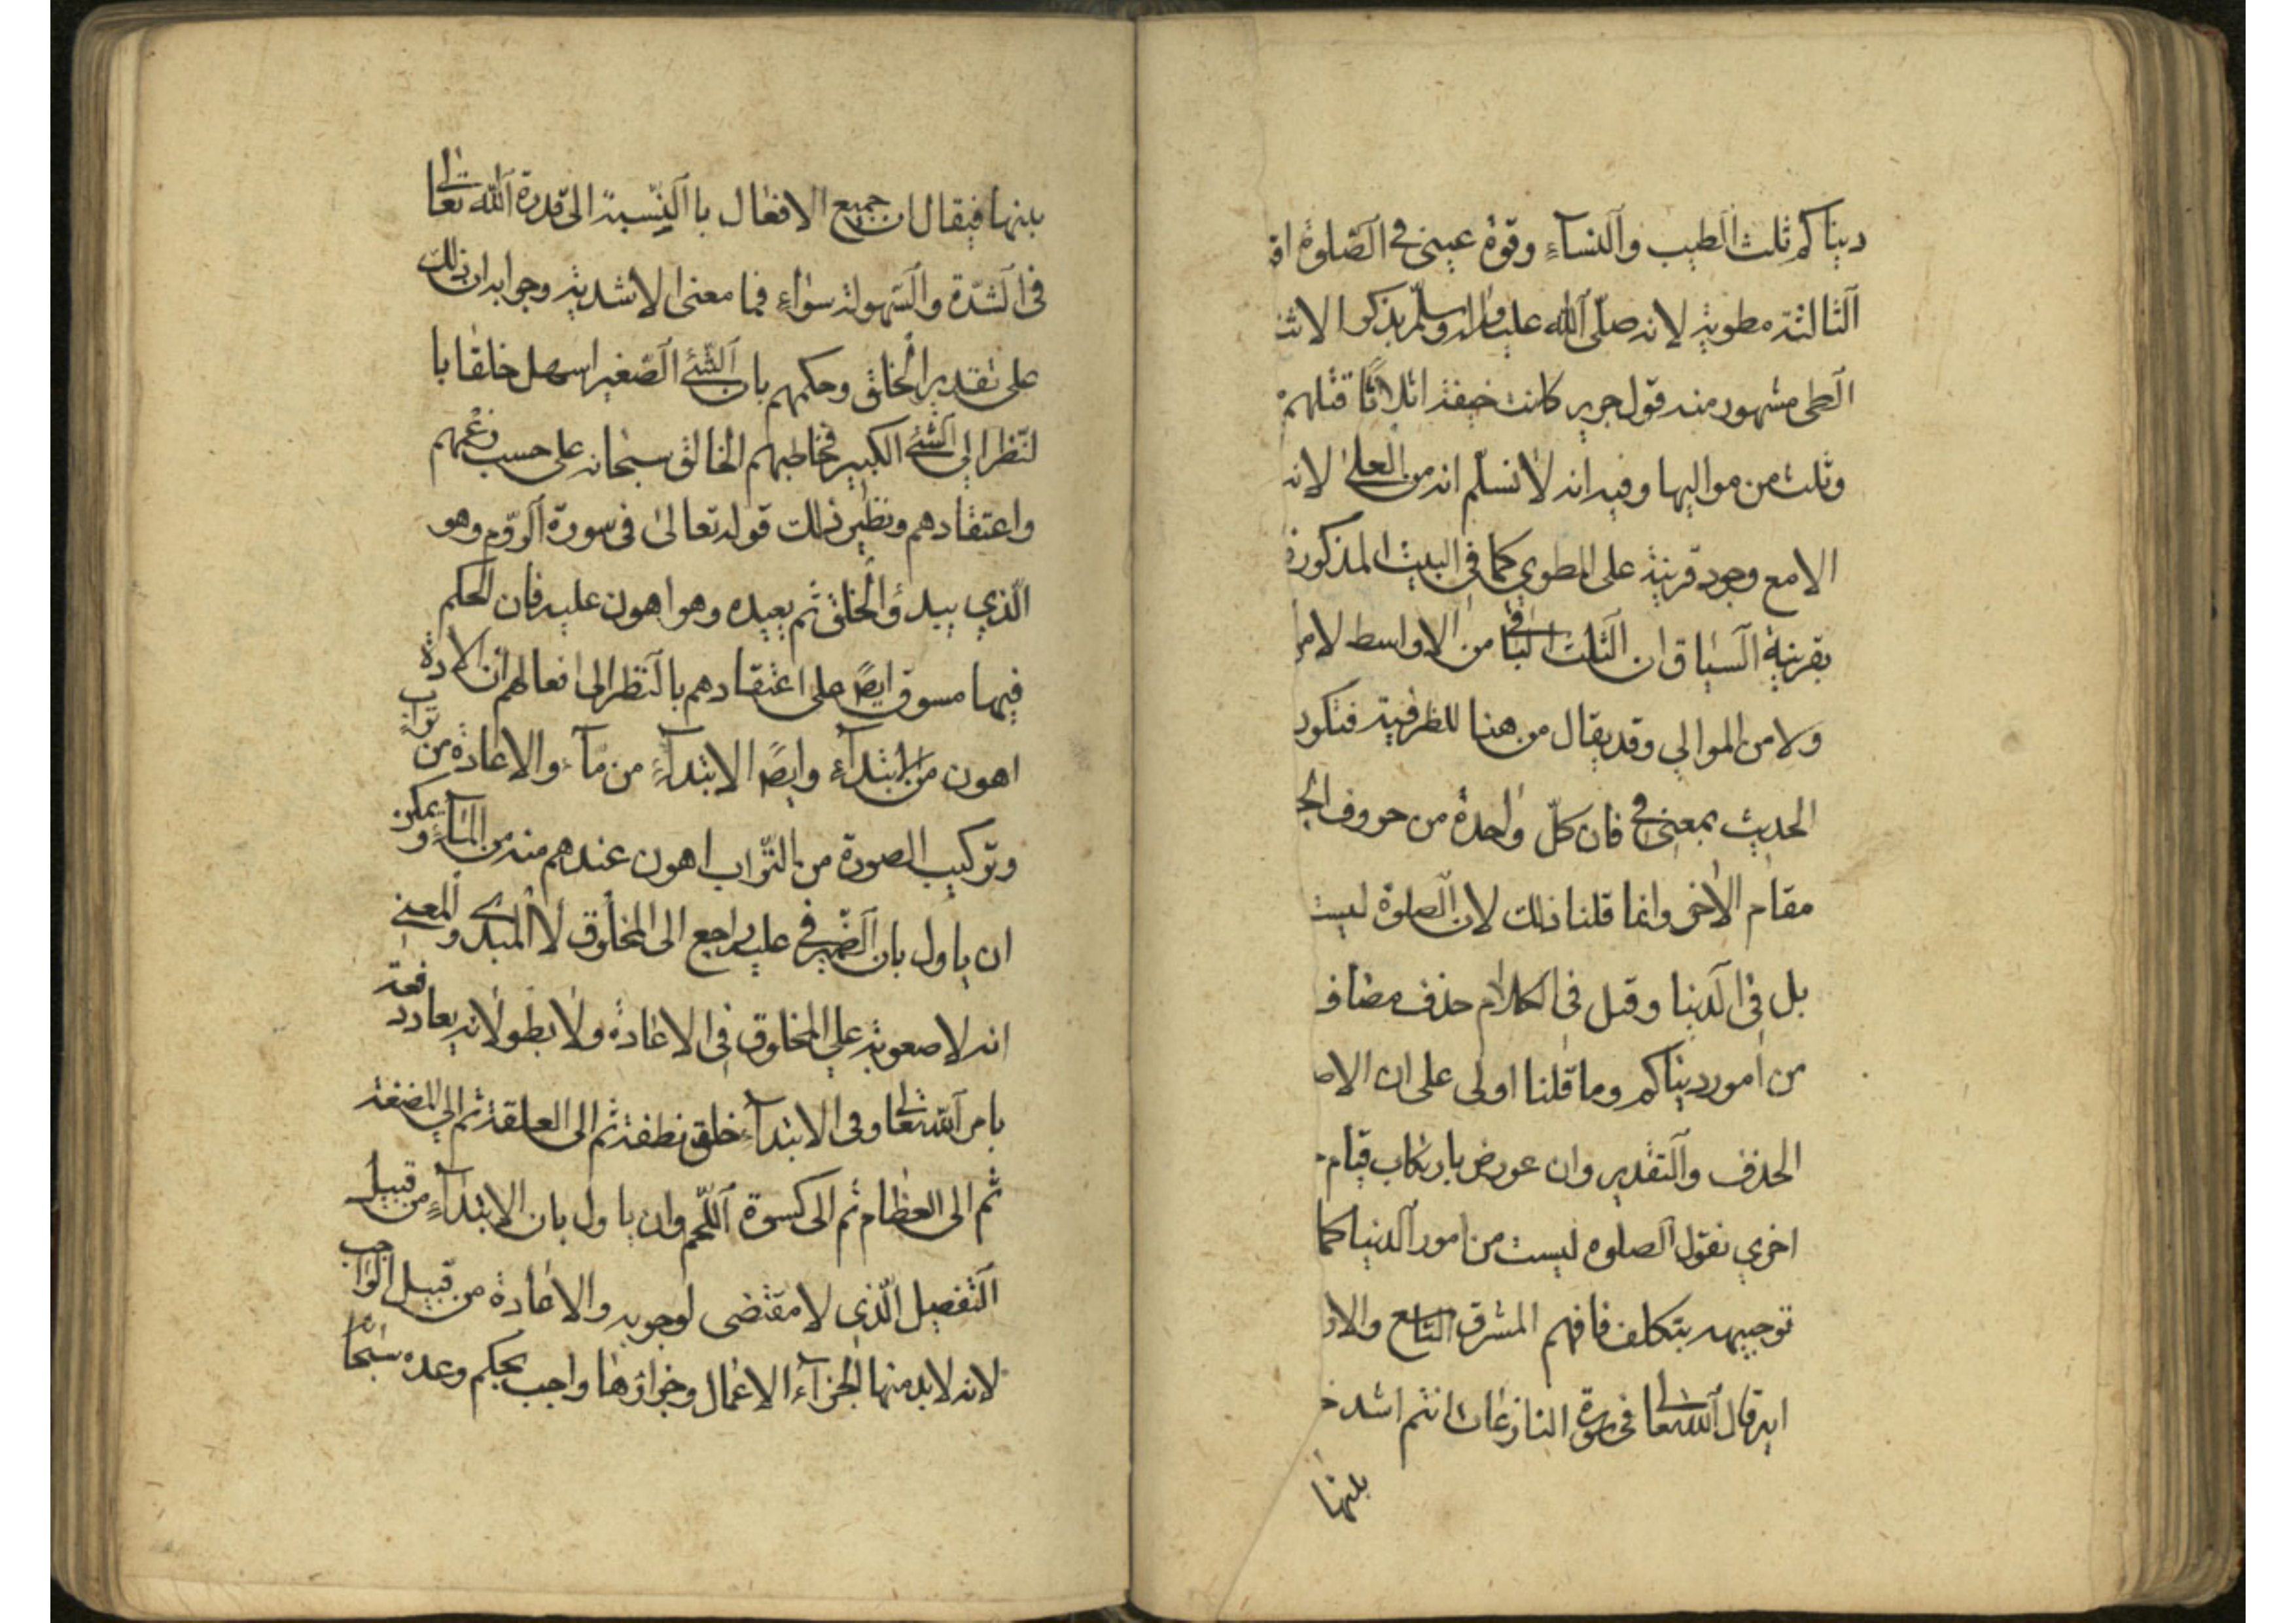 دنياكم ثلث الطيب والنسآء وقوة عيني في الصلوة
الثالثة مطوية لانه صلّى الله عليه واله وسلّم يذكر الا
الطى مشهور منه قول جرير كانت حنيفة اثلاثًا فثلثهم
وثلث من مواليها وفيه انه لا نسلّم انه من العلى لانه
الا مع وجود قرينة على المطوي كما في البيت المذكور
بقرينة السياق ان الثلث الباقى من الاواسط لا من
ولا من الموالي وقد يقال من هنا للظرفية فتكون
الحديث بمعنى في فان كلّ واحدة من حروف الجر
مقام الاخر وانما قلنا ذلك لان الصلوة ليست
بل في الدنيا وقيل في الكلام حذف مضاف
من امور دنياكم وما قلنا اولى على ان
الحذف والتقدير وان عورض بارتكاب قيام
اخري نقول الصلوه ليست من امور الدنيا كما
توجيهه بتكلف فافهم المشرق التاسع
اية قال الله تعالى في سورة النازعات ءانتم اشد
بنيها
بنيها فيقال ان جميع الافعال با النسبة الى قدرة الله تعالى
في الشدّة والسهولة سوٰاء فما معنى الاشدية وجوابه ان ذلك
على تقدير الخلق وحكمهم بان الشئ الصغير اسهل خلقا با
لنّظر الى الشئ الكبير فخاطبهم الخالق سبحانه على حسب زعمهم
واعتقادهم ونظير ذلك قوله تعالىٰ في سورة الروّم وهو
الّذي يبدؤ الخلق ثم يعيده وهو اهون عليه فان الحكم
فيها مسوق ايضً على اعتقادهم بالنظر الى افعالهم ان الاعادة
اهون من الابتدآء وايضً الابتدآء من مآء والاعادة من تراب
وتركيب الصورة من التّراب اهون عندهم منه من المآء ويمكن
ان ياول بان الضّمير في عليه راجع الى المخلوق لا المبدئ والمعنى
انه لا صعوبة علي المخلوق في الاعادة ولا بطو لانه يعاد دفعة
بامر الله تعالى وفى الابتدآء خلق نطفة ثم الى العلقة ثم الي المضغة
ثم الى العظام ثم الى كسوة اللّحم وان ياول بان الابتدآء من قبيل
التفضيل الّذي لا مقتضى لوجوبه والاعادة من قبيل الواجب
لانه لا بد منها لجزآء الاعمال وجزاؤها واجب بحكم وعده سبحانه